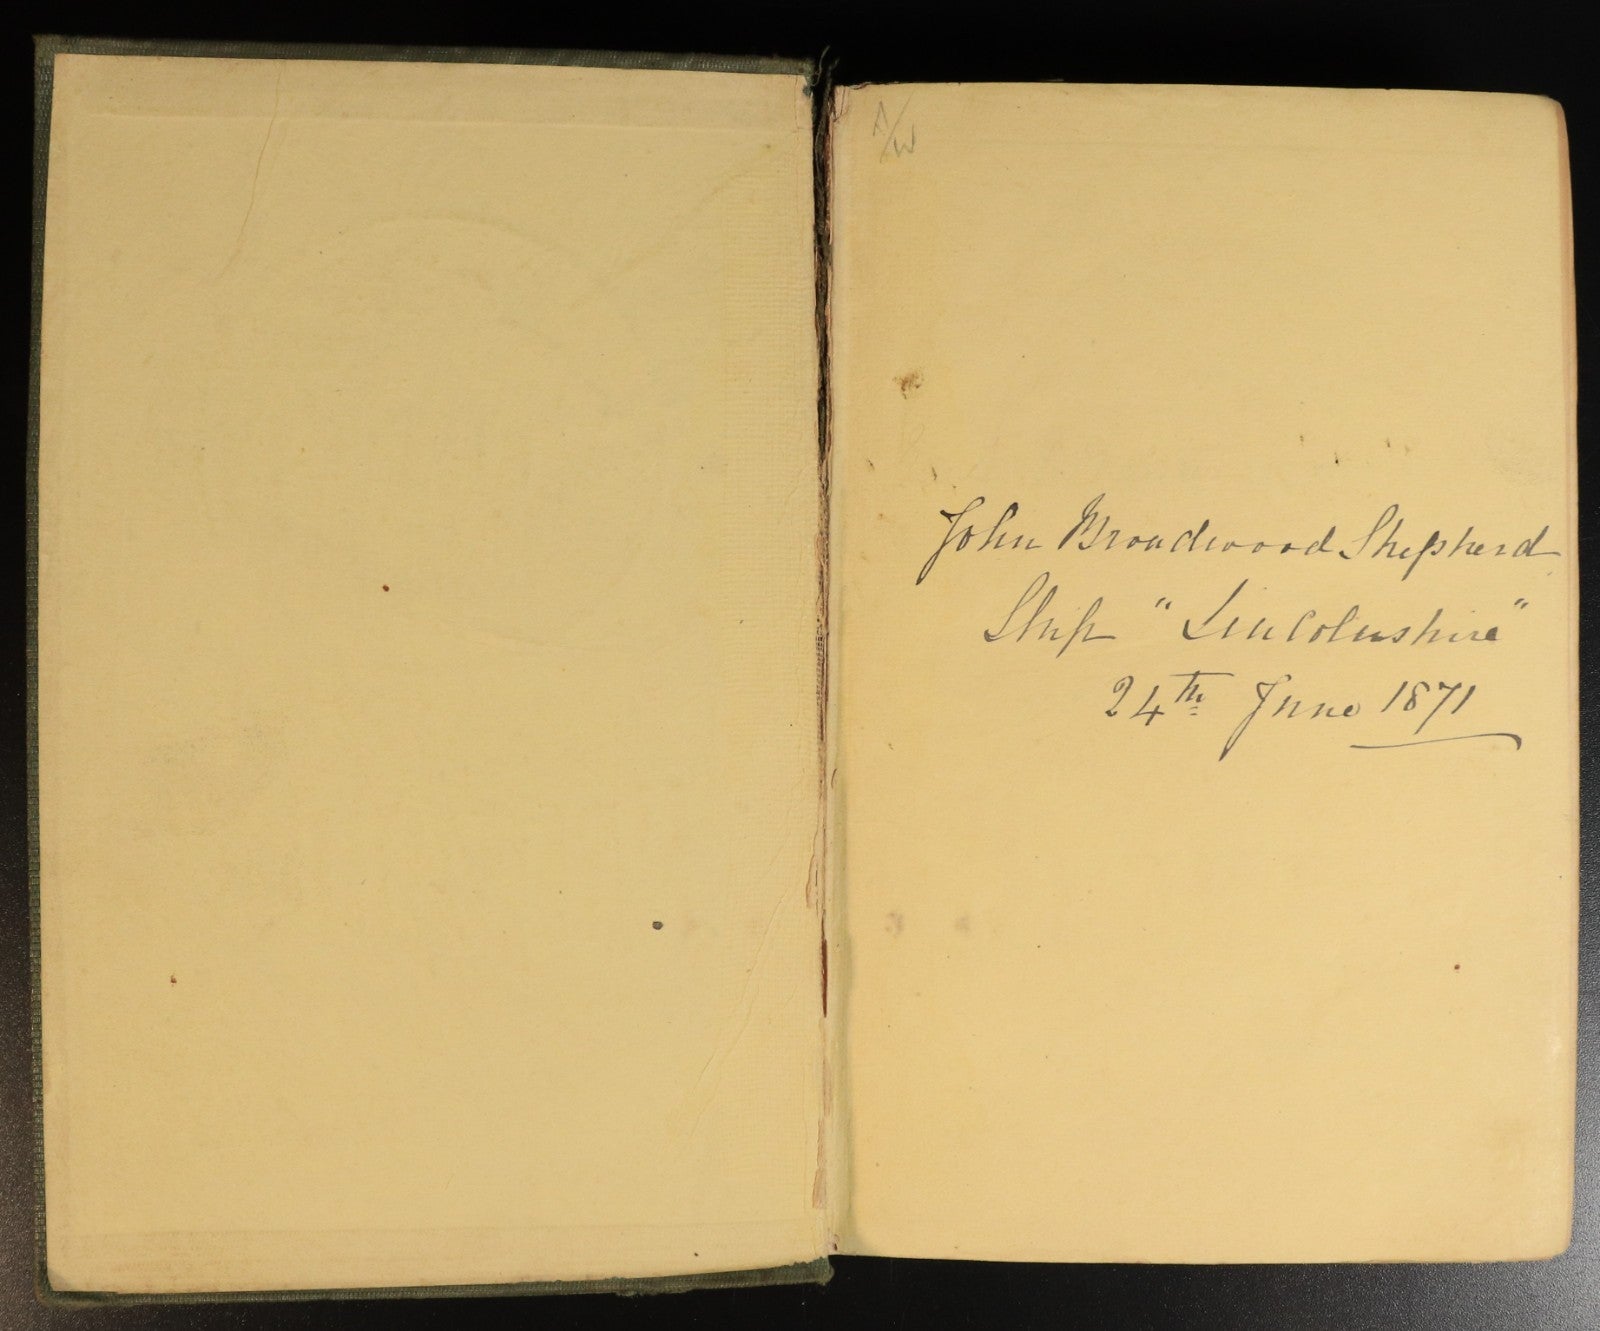 A/W
John Broadwood Shepherd
Ship "Lincolnshire"
24th June 1871